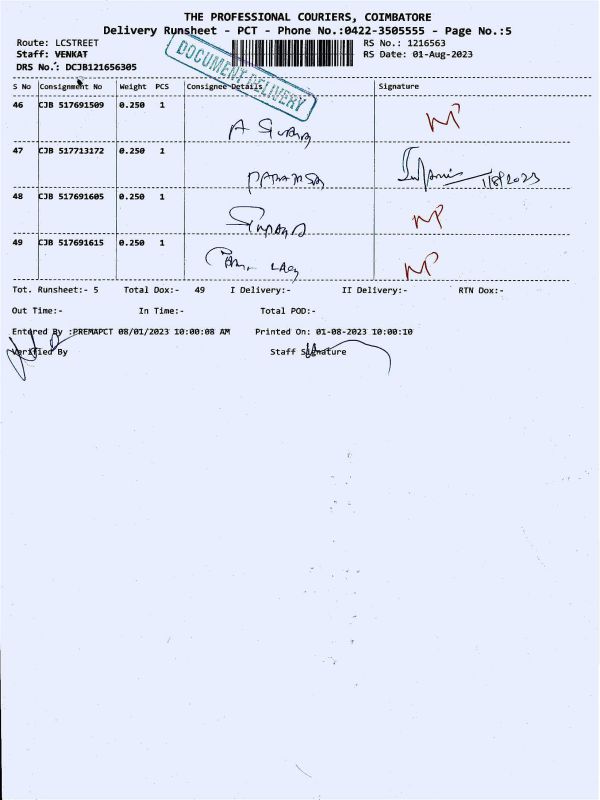 THE PROFESSIONAL COURIERS, COIMBATORE
Delivery Runsheet - PCT - Phone No.:0422-3505555 - Page No.:5
Route: LCSTREET RS No.: 1216563
Staff: VENKAT RS Date: 01-Aug-2023
DRS No.: DCJB121656305
DOCUMENT DELIVERY
S No Consignment No Weight PCS Consignee Details Signature
46 CJB 517691509 0.250 1
47 CJB 517713172 0.250 1 1/8/2023
48 CJB 517691605 0.250 1
49 CJB 517691615 0.250 1
Tot. Runsheet:- 5 Total Dox:- 49 I Delivery:- II Delivery:- RTN Dox:-
Out Time:- In Time:- Total POD:-
Entered By :PREMAPCT 08/01/2023 10:00:08 AM Printed On: 01-08-2023 10:00:10
Verified By Staff Signature